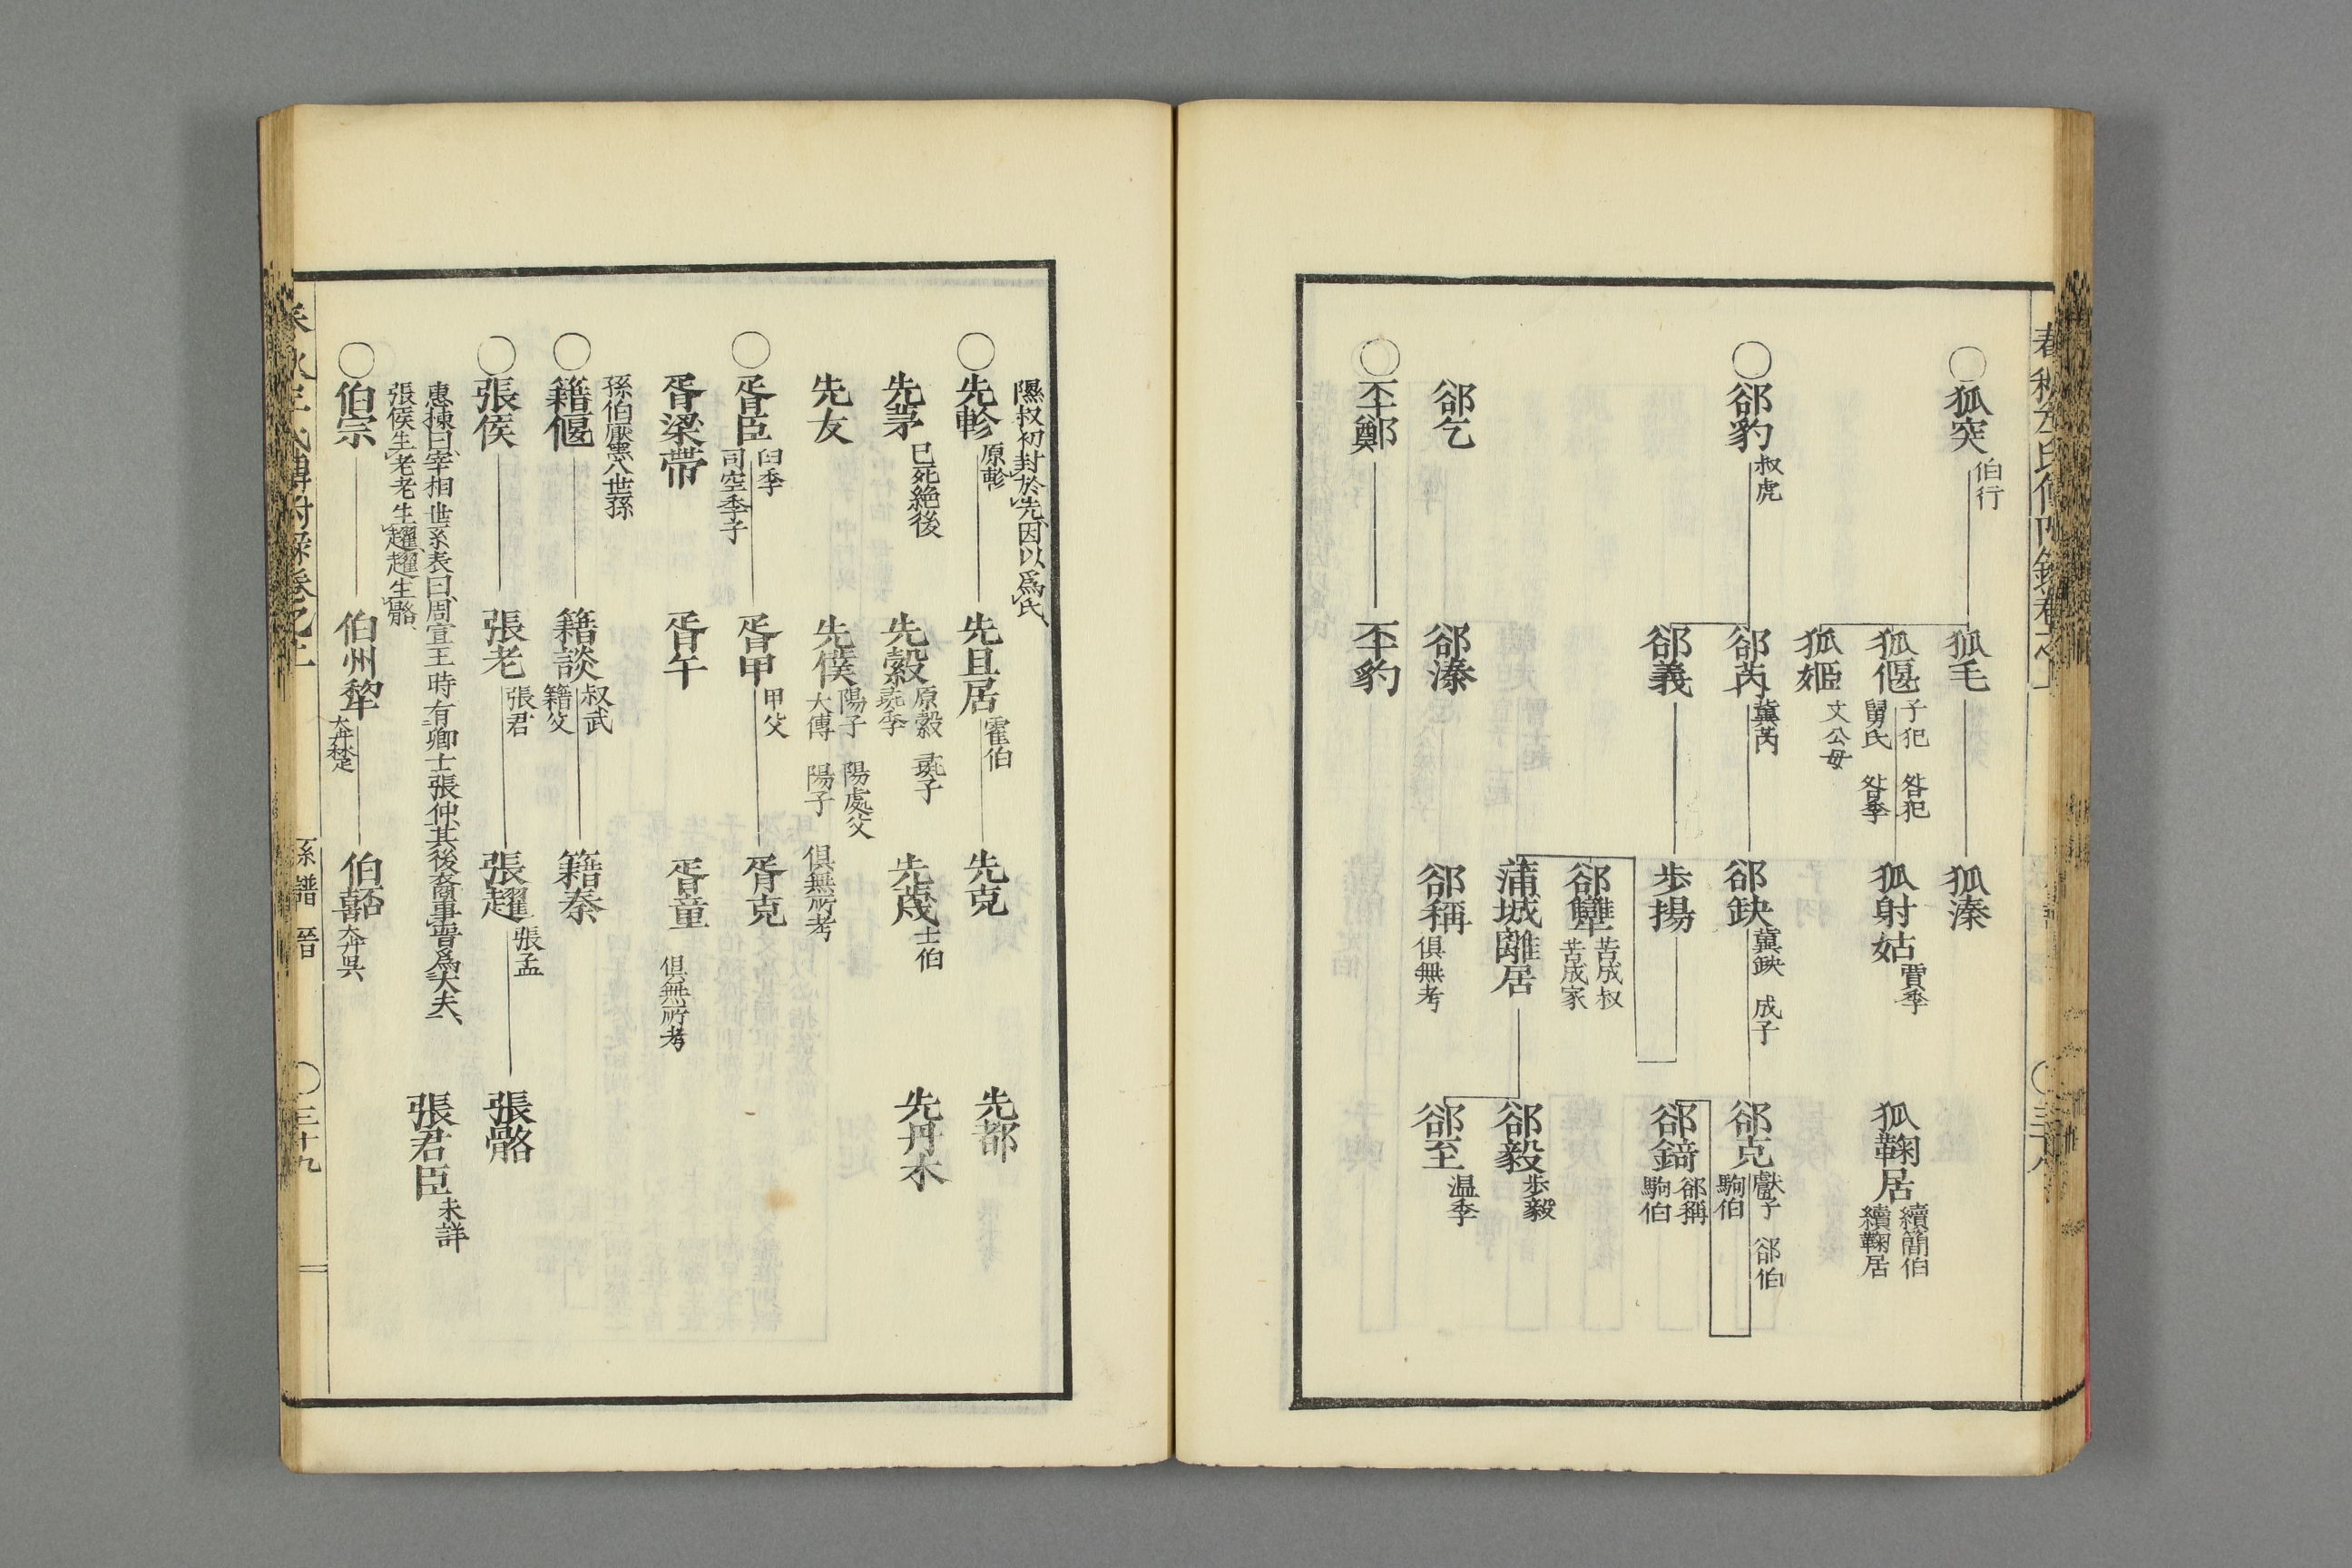 春秋左氏傳附錄卷之上
三十八
○狐突 伯行
狐毛
狐溱
狐偃 子犯 舅氏 咎犯 咎季
狐射姑 賈季
狐鞫居 續簡伯 續鞫居
狐姬 文公母
○郤豹 叔虎
郤芮 冀芮
郤缺 冀缺 成子
郤克 獻子 駒伯 郤伯
郤錡 郤稱 駒伯
郤義
步揚
郤犨 苦成叔 苦成家
蒲城鵲居
郤毅 步毅
郤至 温季
郤乞
郤溱
郤稱 俱無考
○丕鄭
丕豹
隰叔初封於先因以爲氏
○先軫 原軫
先且居 霍伯
先克
先都
先茅 已死絕後
先縠 原縠 彘季 彘子
先蔑 士伯
先丹木
先友
先僕 陽子 大傅 陽處父 陽子 俱無所考
○胥臣 臼季 司空季子
胥甲 甲父
胥克
胥梁帶
胥午
胥童 俱無所考
孫伯黶八世孫
○籍偃
籍談 叔武 籍父
籍秦
○張侯
張老 張君
張趯 張孟
張骼
惠棟曰宰相世系表曰周宣王時有卿士張仲其後裔事晉爲大夫
張侯生老老生趯趯生骼
張君臣 未詳
○伯宗
伯州犂 大奔楚
伯嚭 大奔吳
春秋左氏傳附錄卷之上
系譜 晉
○三十九